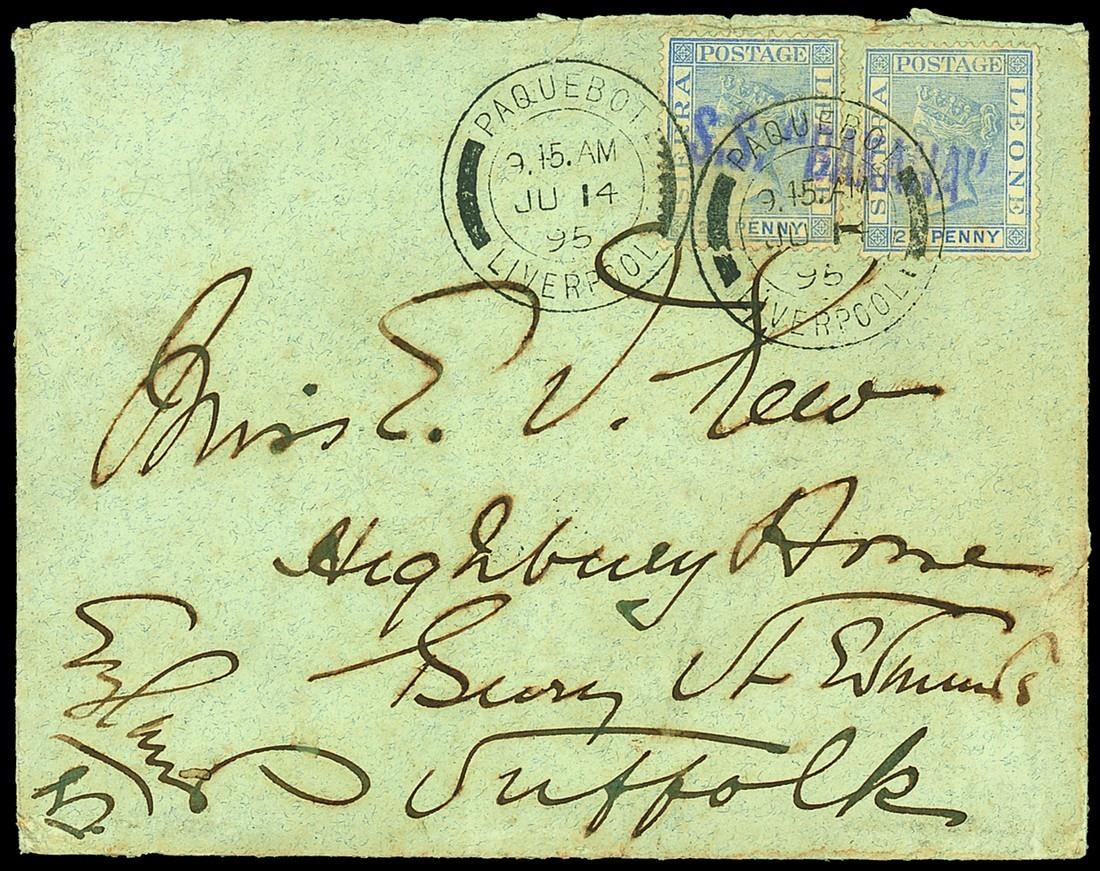 SIERRA POSTAGE LEONE
PENNY
SIERRA POSTAGE LEONE
2 PENNY
S.S.
PAQUEBOT
9.15.AM
JU 14
95
LIVERPOOL
PAQUEBOT
9.15.AM
JU 1
95
LIVERPOOL
Miss E. V. Rew
Highbury House
Bury St Edmunds
Suffolk
England